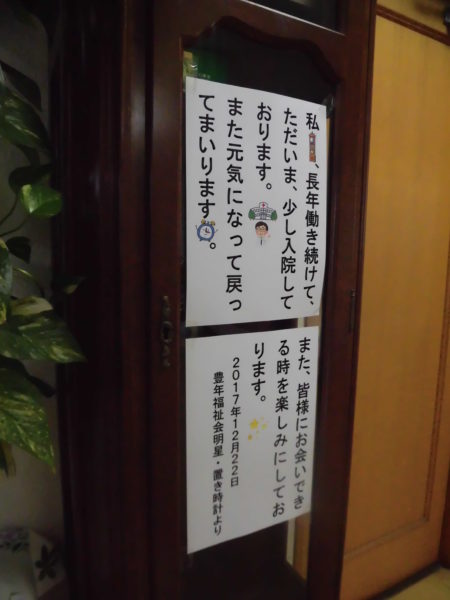 私、長年働き続けて、
ただいま、少し入院して
おります。
また元気になって戻っ
てまいります。
また、皆様にお会いでき
る時を楽しみにしてお
ります。
２０１７年１２月２２日
豊年福祉会明星・置き時計より